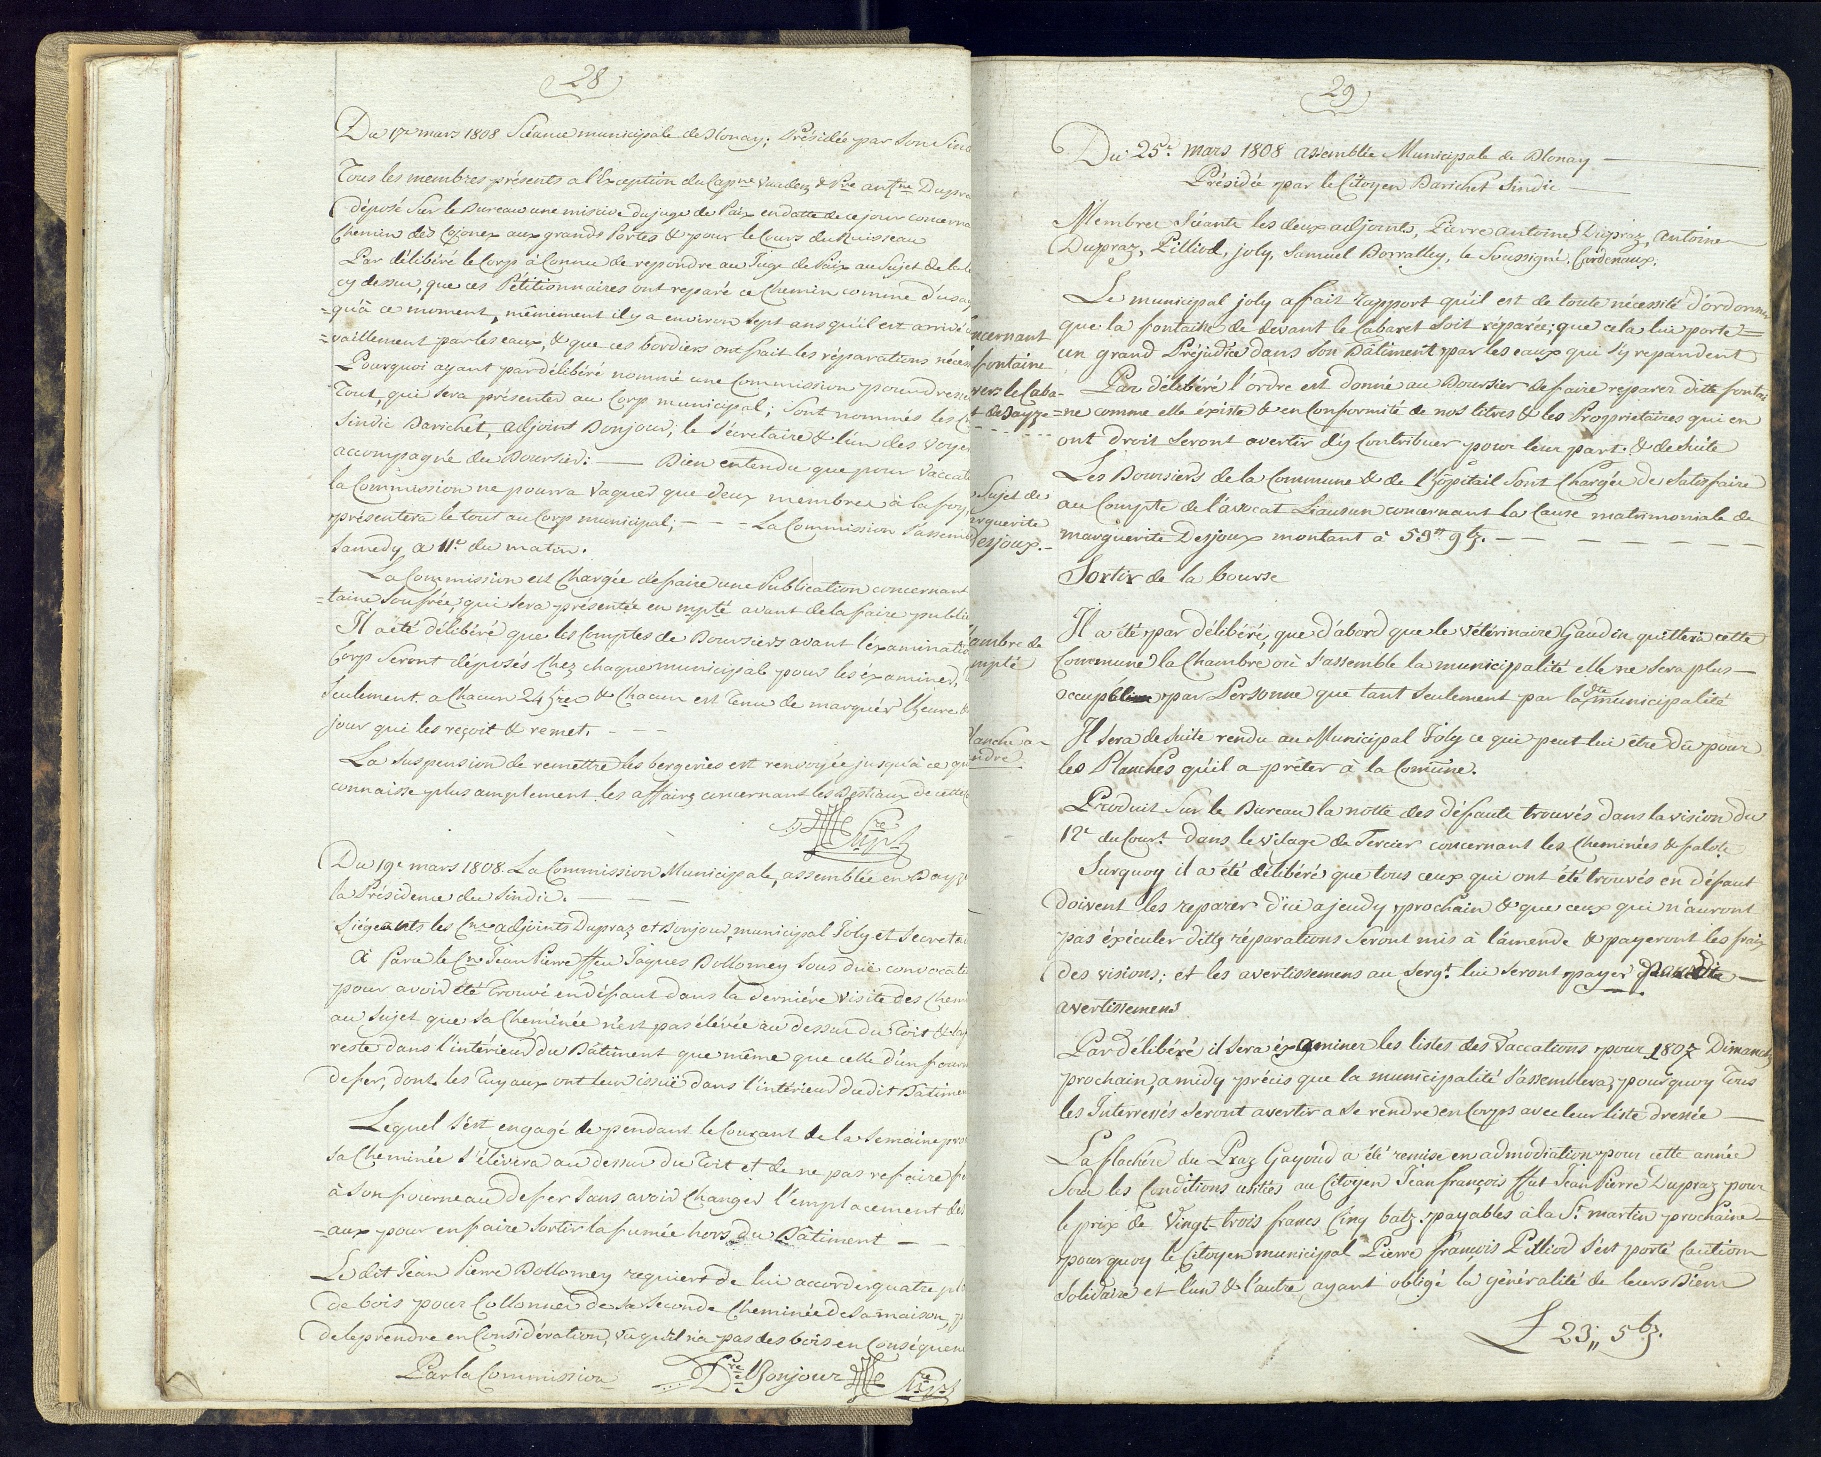 28
Du 17e mars 1808 Séance municipale de Blonay; Présidée par Son Sind
Tous les membres présents a l'Exception du Capne Vaudex & Pre antne Dupra
déposé Sur le Bureau une missive du juge de Paix en datte de ce jour concerna
Chemin des Cojonex aux grands Portes & pour le Cours du Ruisseau
Par délibéré le Corp à Connu de repondre au Juge de Paix au Sujet de la
cy dessu, que ces Pétitionnaires ont reparé ce Chemin comme d'usa
=qu'à ce moment, mêmement il y a environ Sept ans qu'il est arrivé
=vaillement par les eaux, & que ces bordiers ont fait les réparations néces
Pourquoi ayant par délibéré nommé une Commission pour dresse
Tout, qui Sera présenter au Corp municipal; Sont nommés les Cn
Sindic Barichet, adjoint Bonjour, le Sécretaire & l'un des Voye
accompagné du Boursier: — Bien entendu que pour Vaccat
la Commission ne pourra Vaquer que deux membres à la foy,
présentera le tout au Corp municipal; - - - La Commission S'assem
Samedy a 11e du matin.
La Commission est Chargée de faire une Publication concernant
=taine Soufrée, qui Sera présentée en mpté avant de la faire publi
Il a été délibéré que les Comptes de Boursiers avant l'éxaminati
Corp Seront déposés Chez chaque municipale pour les éxaminer,
Seulement a Chacun 24 hres & Chacun est Tenu de marquér l'heure &
jour qui les reçoit & remet. - - -
La Suspension de remettre les bergeries est renvoyée jusqu'à ce qu
connaisse plus amplement les affaires concernant les Bestiaux de cette
Du 19e mars 1808. La Commission Municipale, assemblée en Bayz
la Présidence du Sindic. - - - -
Siégeants les Cns adjoints Dupraz et Bonjour, municipal Joly et Secreta
A Paru le Cn Jean Pierre ffeu Jaques Bollomey Sous düe convocati
pour avoir été Trouvé en défaut dans la derniére Visite des Chem
au Sujet que Sa Cheminée n'est pas élévée au dessu du Toit &
reste dans l'intérieur du Bâtiment que même que celle d'un fourn
de fer, dont les Tuyaux ont leur issüe dans l'intérieur du dit Batime
Lequel S'est engagé de pendant le Courant de la Semaine pro
Sa Cheminée S'élévera au dessu du Toit et de ne pas refaire f
à Son fourneau de fer Sans avoir Changer l'emplacement de
=aux pour en faire Sortir la fumée hors du Bâtiment — - -
Le dit Jean Pierre Bollomey requiert de lui accorder quatre p
de bois pour Collonner de Sa Seconde Cheminée de Sa maison,
de le prendre en Considération, vu qu'il n'a pas des bois en Conséquen
Par la Commission Pre Bonjour
29
Du 25e mars 1808 assemblée Municipale de Blonay —
Présidée par le Citoyen Barichet Sindic —
Membres Séants les deux adjoints, Pierre antoine Dupraz, Antoine
Dupraz, Pilliod, joly, Samuel Borralley, le Soussigné, Cardenaux.
Le municipal joly a fait rapport qu'il est de toute nécessité d'ordonner
ncernant que la fontaine de devant le Cabaret Soit réparée; que cela lui porte=
fontaine un grand Préjudice dans Son Bâtiment par les eaux qui S'y repandent
vers le Caba- Par délibéré l'ordre est donné au Boursier de faire reparer ditte fontai
t de Bayze =ne comme elle éxiste & en Conformité de nos titres & les Proprietaires qui en
ont droit Seront avertir d'y Contribuer pour leur part. & de Suite
Sujet de Les Boursiers de la Commune & de l'hôpitail Sont Chargée de Satisfaire
rguerite au Compte de l'avocat Liausun concernant la Cause matrimoniale de
esjoux.- marguerite Desjoux montant à 53 9 bz. — — — —
Sortir de la bourse
ambre de Il a été par délibéré, que d'abord que le vétérinaire Gaudin quittera cette
mpté Commune la Chambre où S'assemble la municipalité elle ne Sera plus —
occupé par Personne que tant Seulement par la dte municipalité
lanche a- Il Sera de Suite rendu au Municipal Joly ce qui peut lui être dû pour
ndre les Planches qu'il a prêter à la Comune.
Produit Sur le Bureau la notte des défauts trouvés dans la vision du
12e du Court dans le vilage de Tercier concernant les Cheminées & falots
Surquoy il a été délibéré que tous ceux qui ont été trouvés en défaut
doivent les reparer d'ici a jeudy prochain & que ceux qui n'auront
pas éxécuter dittes réparations Seront mis à l'amende & payeront les fraix
des visions; et les avertissemens au Sergt lui Seront payer
avertissemens
Par délibéré il Sera éxaminer les listes des Vaccations pour 1807 Dimanche
prochain, a midy précis que la municipalité S'assemblera, pourquoy Tous
les Interressés Seront avertir a Se rendre en Corps avec leur liste dressée —
La flachére du Praz Gayoud a été remise en admodiation pour cette année
Sous les Conditions usitées au Citoyen Jean françois ffeu Jean Pierre Dupraz pour
le prix de Vingt-trois francs Cinq batz payables à la St. martin prochaine
pourquoy le Citoyen municipal Pierre françois Pilliod S'est porté Caution
Solidaire et l'un & l'autre ayant obligé la généralité de leurs Biens
L 23,, 5 bz.